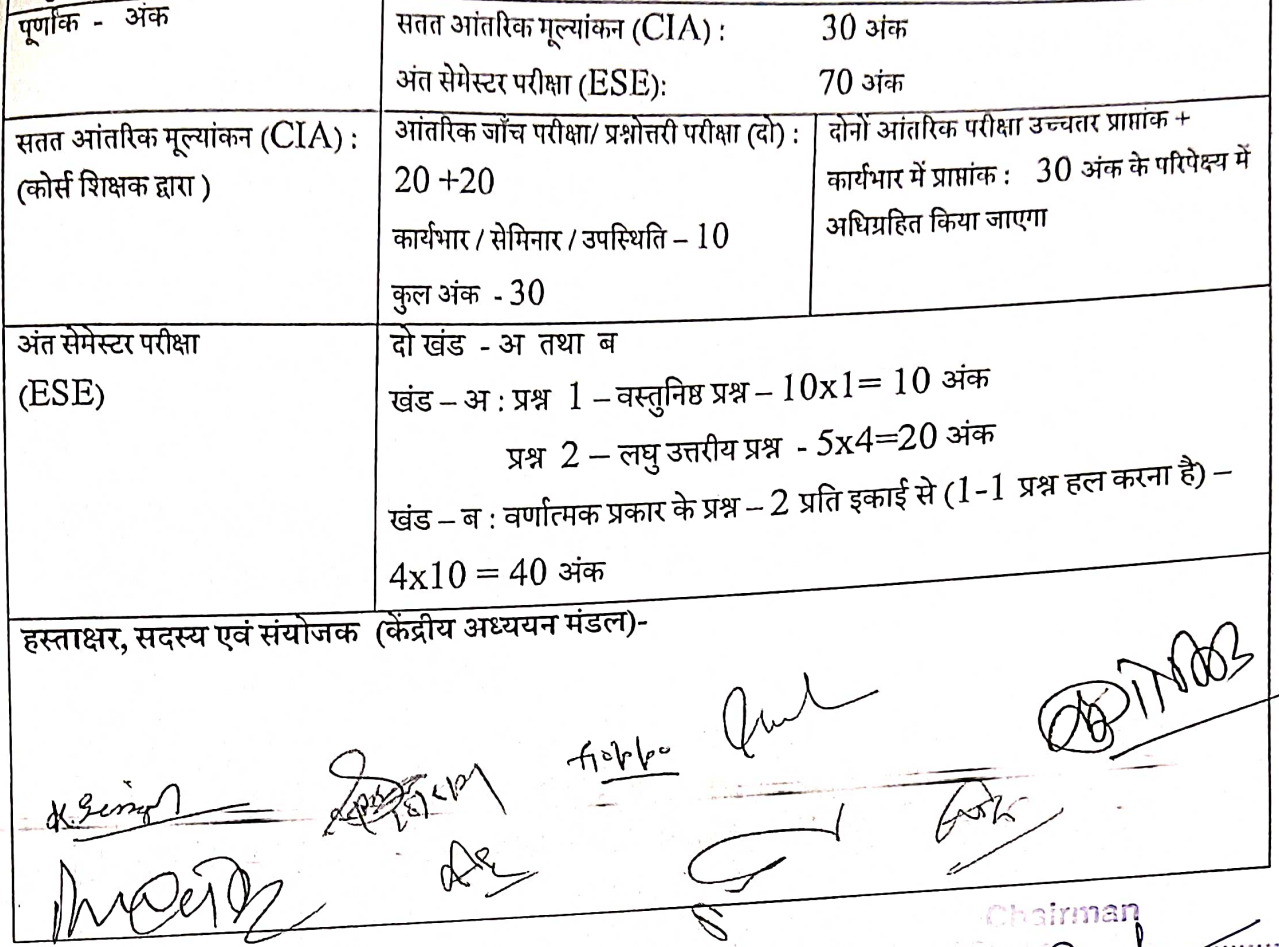 पूर्णांक - अंक
सतत आंतरिक मूल्यांकन (CIA) : 30 अंक
अंत सेमेस्टर परीक्षा (ESE): 70 अंक
सतत आंतरिक मूल्यांकन (CIA) :
(कोर्स शिक्षक द्वारा )
आंतरिक जाँच परीक्षा/ प्रश्नोत्तरी परीक्षा (दो) :
20 +20
कार्यभार / सेमिनार / उपस्थिति – 10
कुल अंक - 30
दोनों आंतरिक परीक्षा उच्चतर प्राप्तांक +
कार्यभार में प्राप्तांक : 30 अंक के परिपेक्ष्य में
अधिग्रहित किया जाएगा
अंत सेमेस्टर परीक्षा
(ESE)
दो खंड - अ तथा ब
खंड – अ : प्रश्न 1 – वस्तुनिष्ठ प्रश्न – 10x1= 10 अंक
प्रश्न 2 – लघु उत्तरीय प्रश्न - 5x4=20 अंक
खंड – ब : वर्णात्मक प्रकार के प्रश्न – 2 प्रति इकाई से (1-1 प्रश्न हल करना है) –
4x10 = 40 अंक
हस्ताक्षर, सदस्य एवं संयोजक (केंद्रीय अध्ययन मंडल)-
K. Singh
Chairman